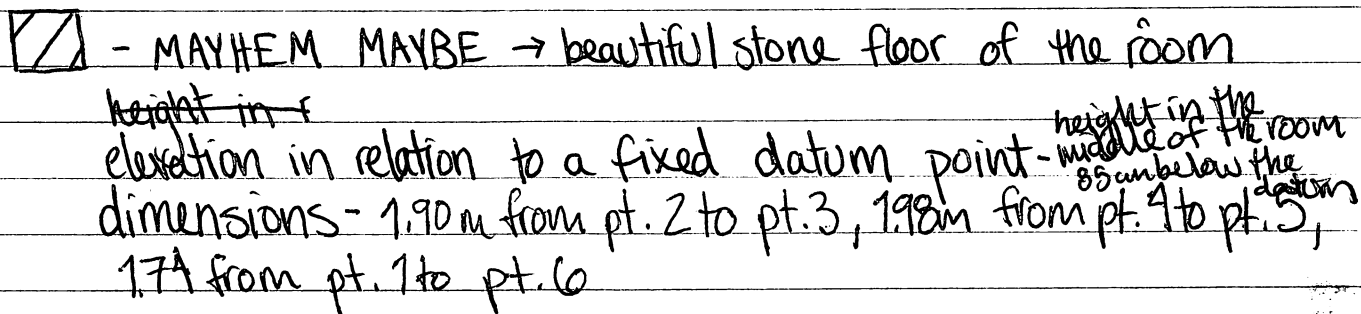 - MAYHEM MAYBE → beautiful stone floor of the room
height in r
elevation in relation to a fixed datum point - height in the middle of the room 85cm below the datum
dimensions - 1.90m from pt. 2 to pt. 3, 1.98m from pt. 4 to pt. 5,
1.74 from pt. 1 to pt. 6